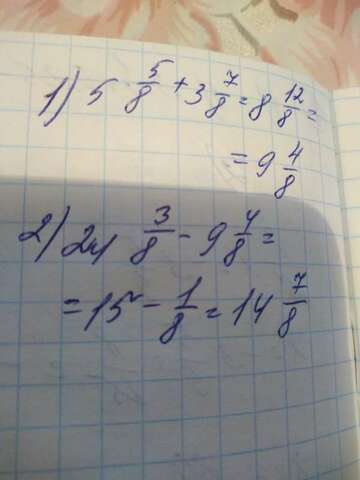 1) 5 5/8 + 3 7/8 = 8 12/8 =
= 9 4/8
2) 24 3/8 - 9 4/8 =
= 15 - 1/8 = 14 7/8